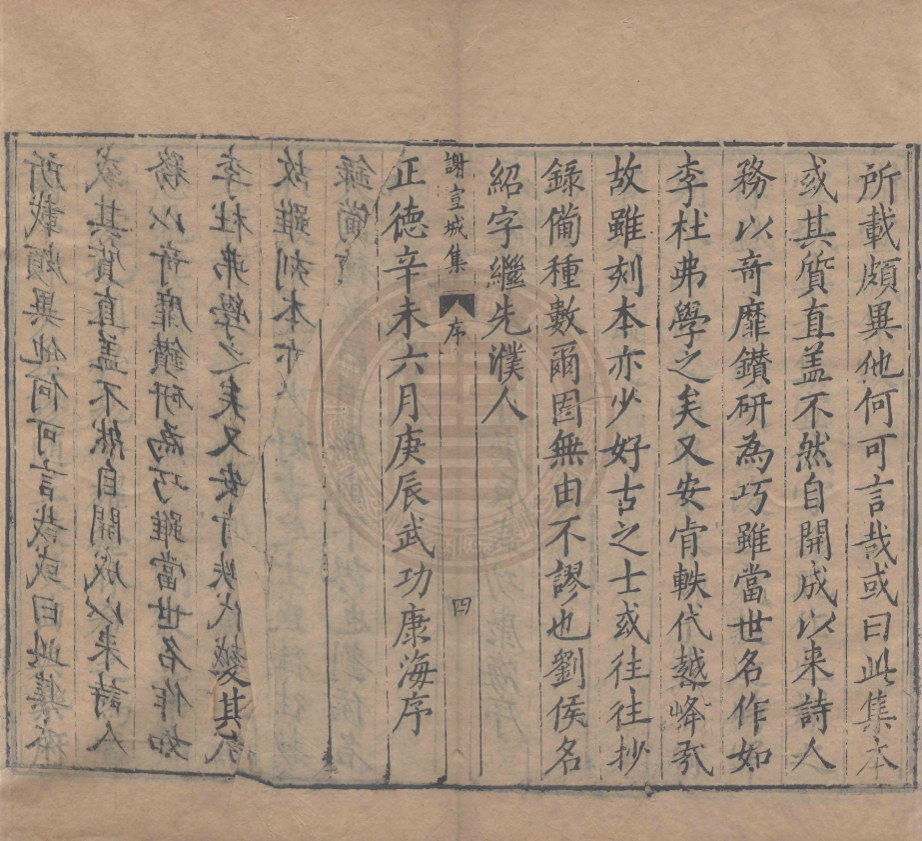 所載頗異他何可言哉或曰此集本
或其質直盖不然自開成以来詩人
務以竒靡鑚研為巧雖當世名作如
李杜弗學之矣又安肯軼代越峰
故雖刻本亦少好古之士或往往抄
錄備種數爾固無由不謬也劉侯名
紹字繼先濮人
謝宣城集 序 四
正德辛未六月庚辰武功康海序